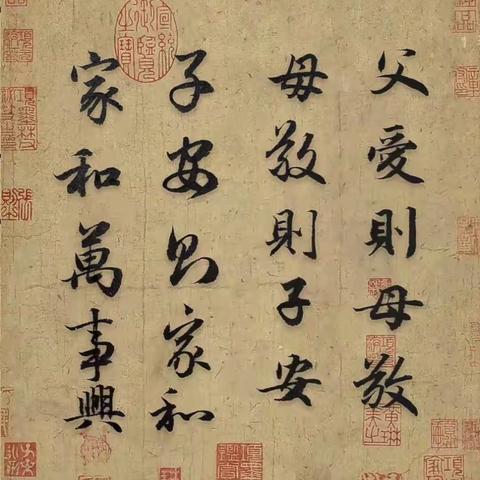 父愛則母敬
母敬則子安
子安则家和
家和萬事興